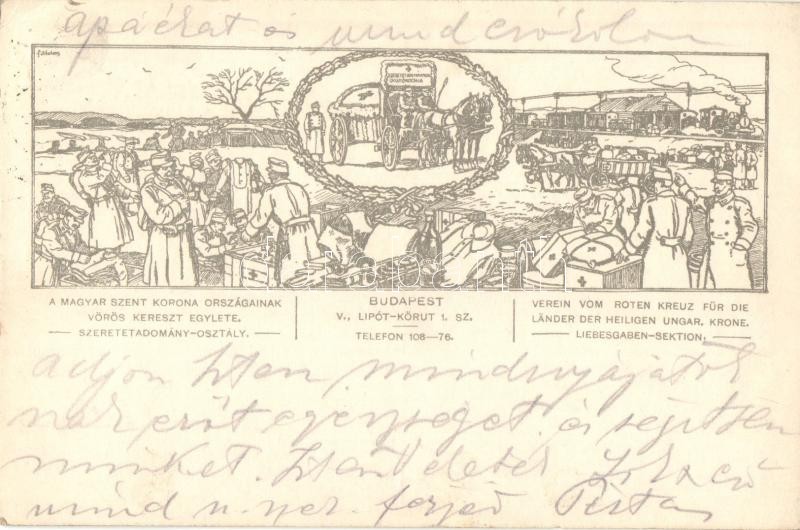 apáékat és mind csókolom
A MAGYAR SZENT KORONA ORSZÁGAINAK
VÖRÖS KERESZT EGYLETE.
SZERETETADOMÁNY-OSZTÁLY.
BUDAPEST
V., LIPÓT-KÖRUT 1. SZ.
TELEFON 108—76.
VEREIN VOM ROTEN KREUZ FÜR DIE
LÄNDER DER HEILIGEN UNGAR. KRONE.
LIEBESGABEN-SEKTION.
adjon Isten mindnyájatok
nak erőt egességet és segítsen
minket. Isten
mind